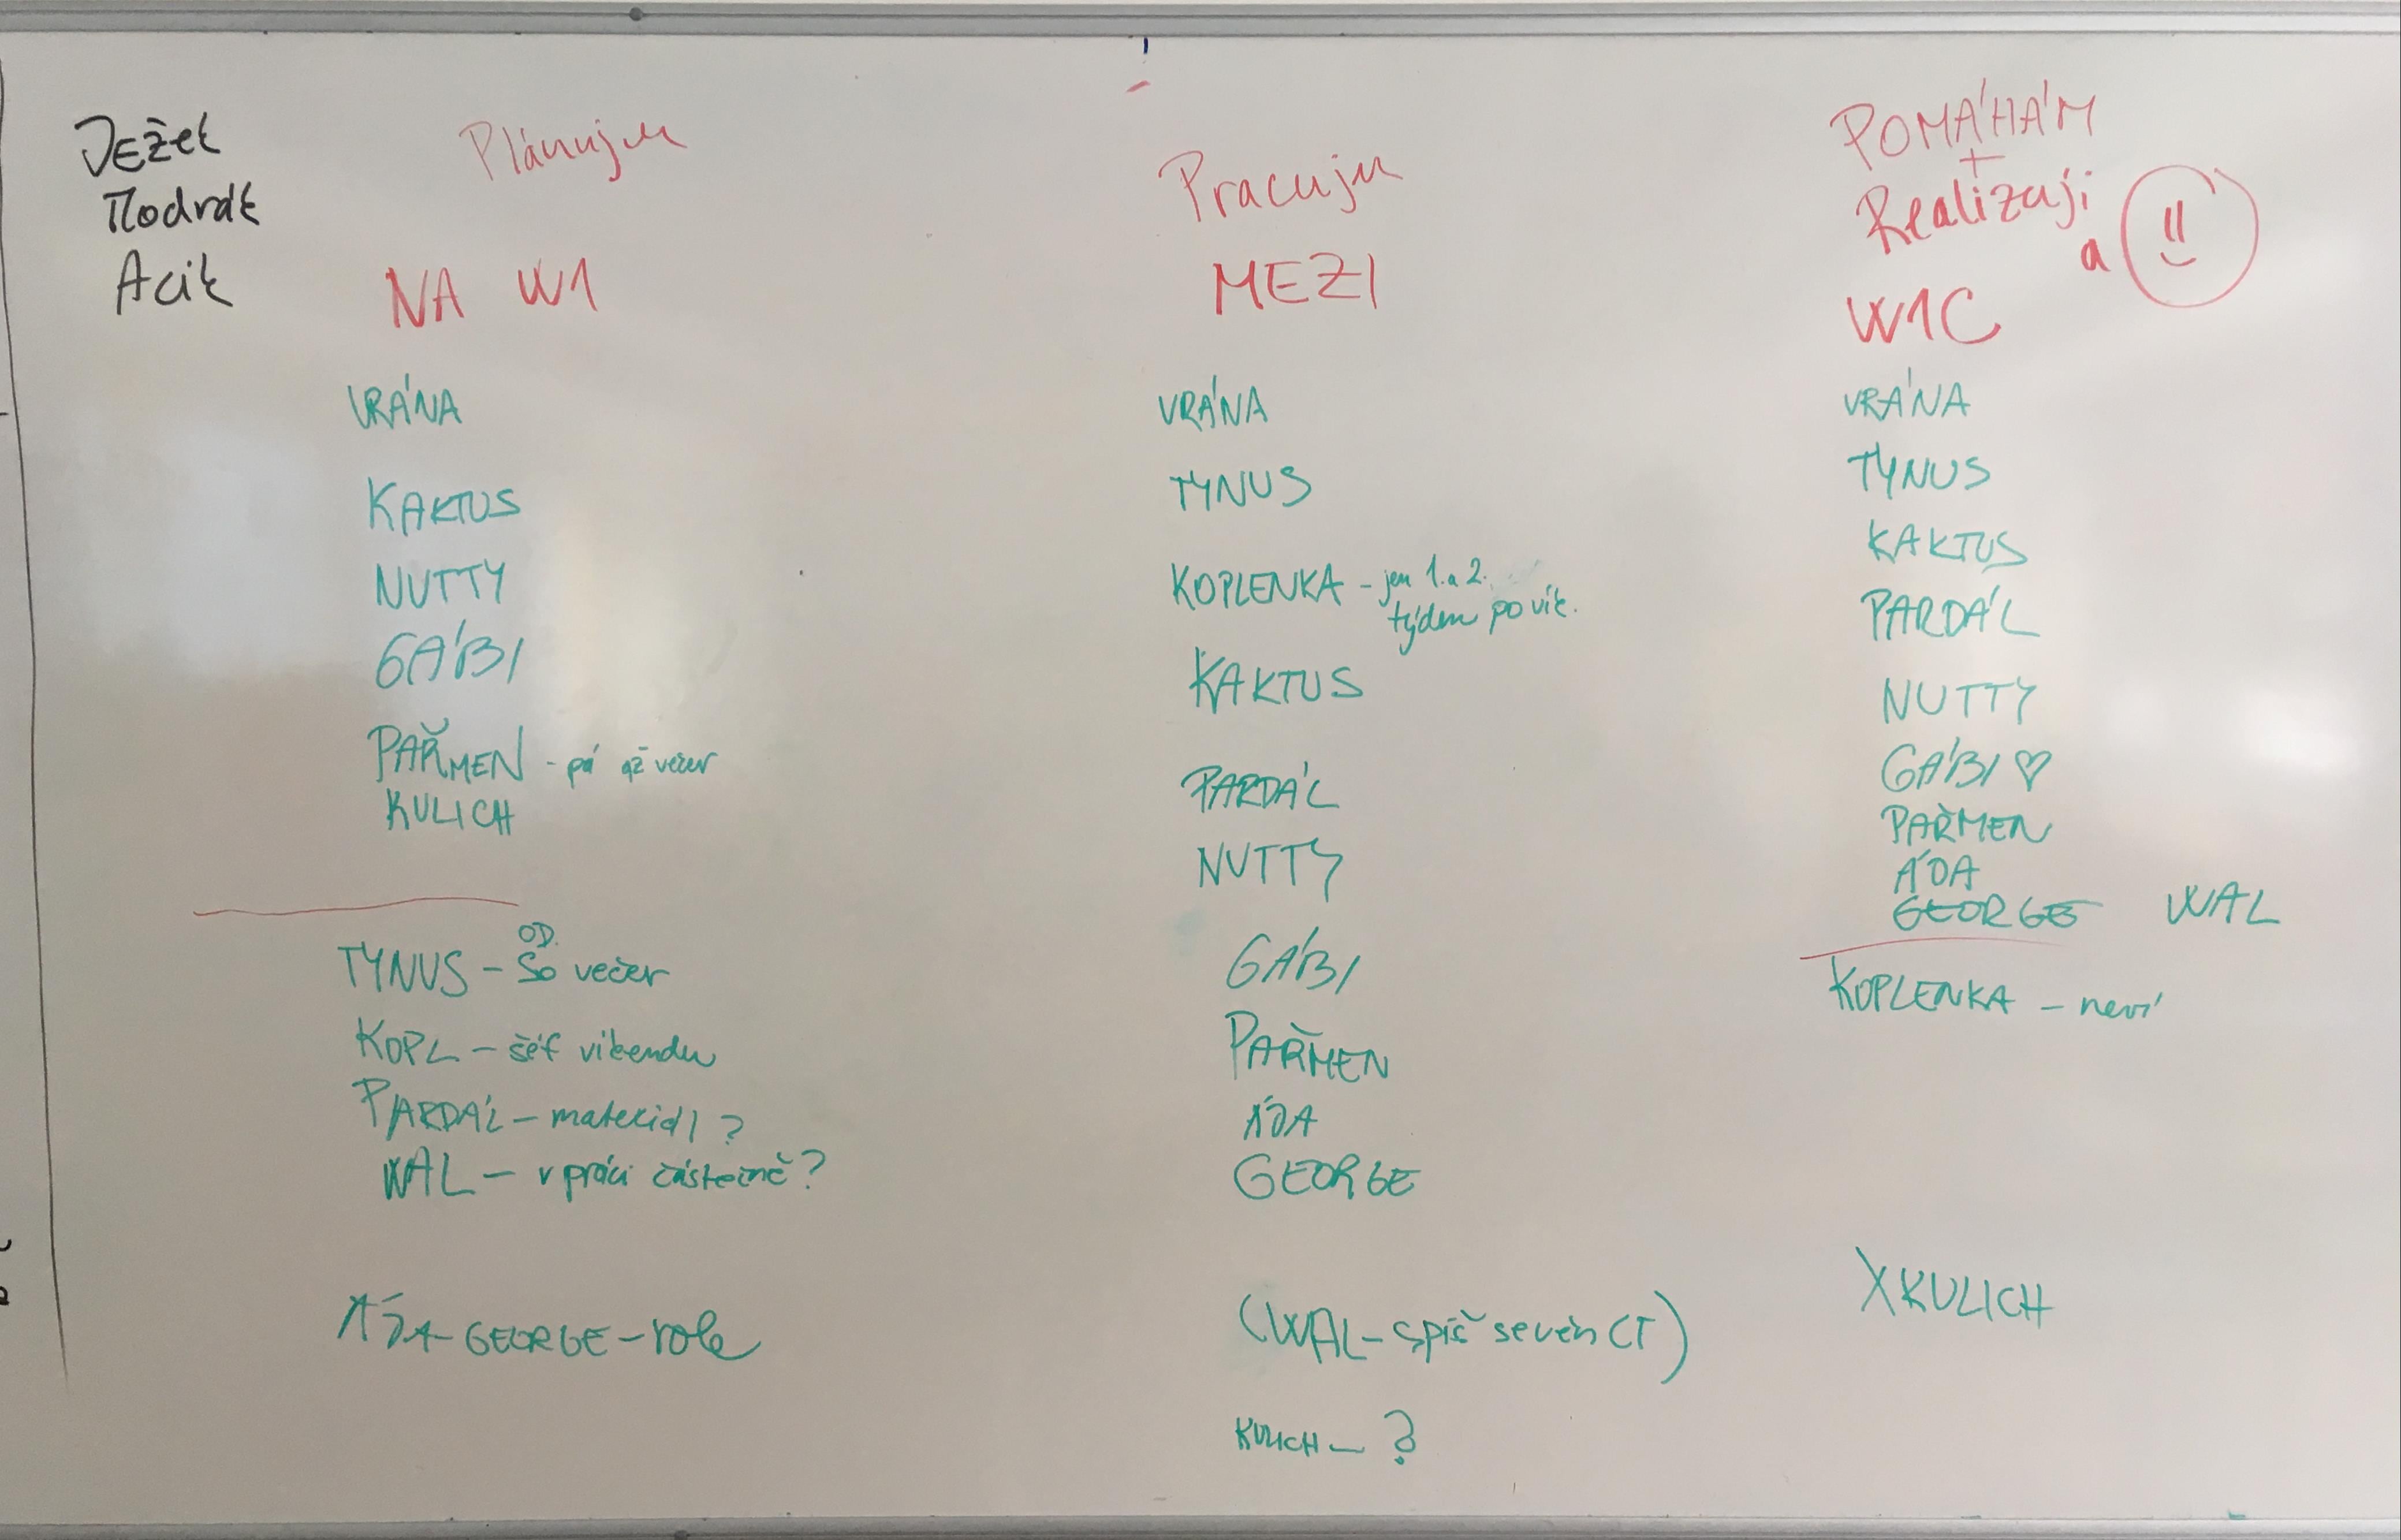 Ježek
Modrák
Acik
Plánuju
NA W1
VRÁNA
KAKTUS
NUTTY
GÁBI
PAŘMEN - pá až večer
KULICH
OD.
TYNUS - So večer
KOPL - šéf víkendu
PARDÁL - materiál?
WAL - v práci částečně?
ÁĎA - GEORGE - role
Pracuju
MEZI
VRÁNA
TYNUS
KOPLENKA - jen 1. a 2.
týden po vík.
KAKTUS
PARDÁL
NUTTY
GÁBI
PAŘMEN
ÁĎA
GEORGE
(WAL - spíš severn CT)
KULICH - ?
POMÁHÁM
+
Realizuji
a
W1C
VRÁNA
TYNUS
KAKTUS
PARDÁL
NUTTY
GÁBI ♡
PAŘMEN
ÁĎA
GEORGE WAL
KOPLENKA - neví
X KULICH